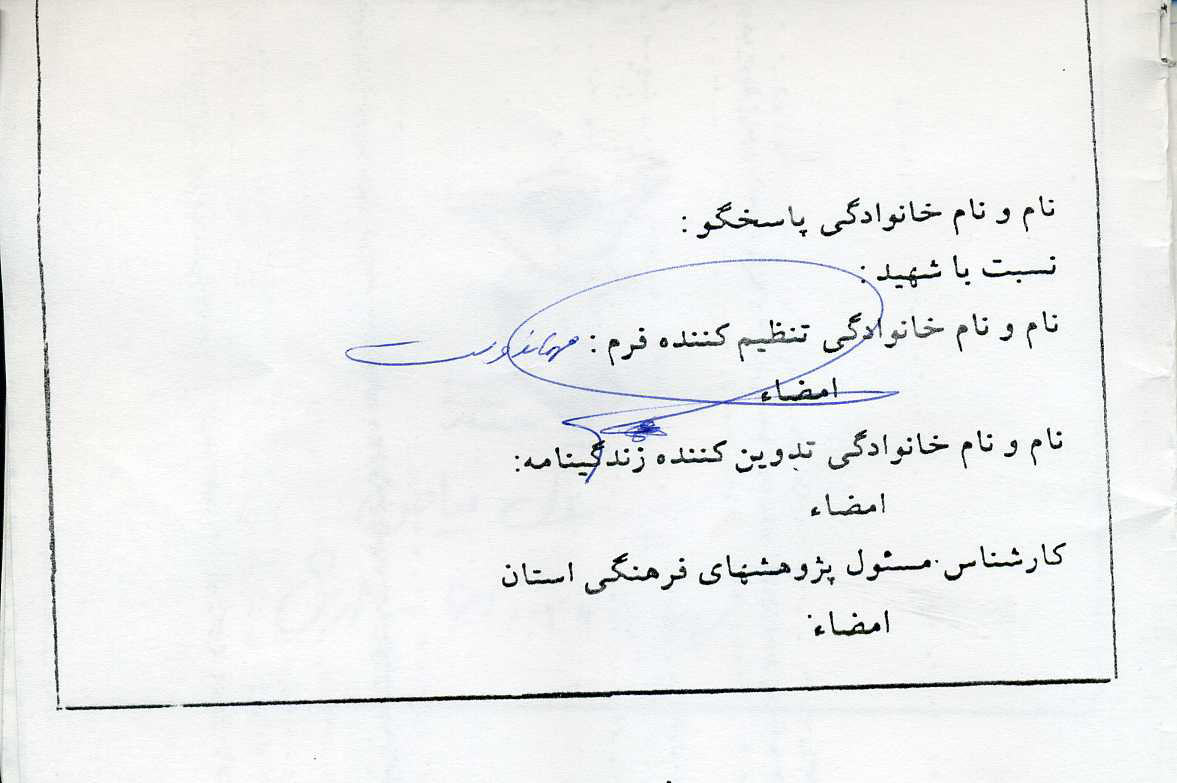 نام و نام خانوادگی پاسخگو :
نسبت با شهید :
نام و نام خانوادگی تنظیم کننده فرم :
امضاء
نام و نام خانوادگی تدوین کننده زندگینامه:
امضاء
کارشناس مسئول پژوهشهای فرهنگی استان
امضاء